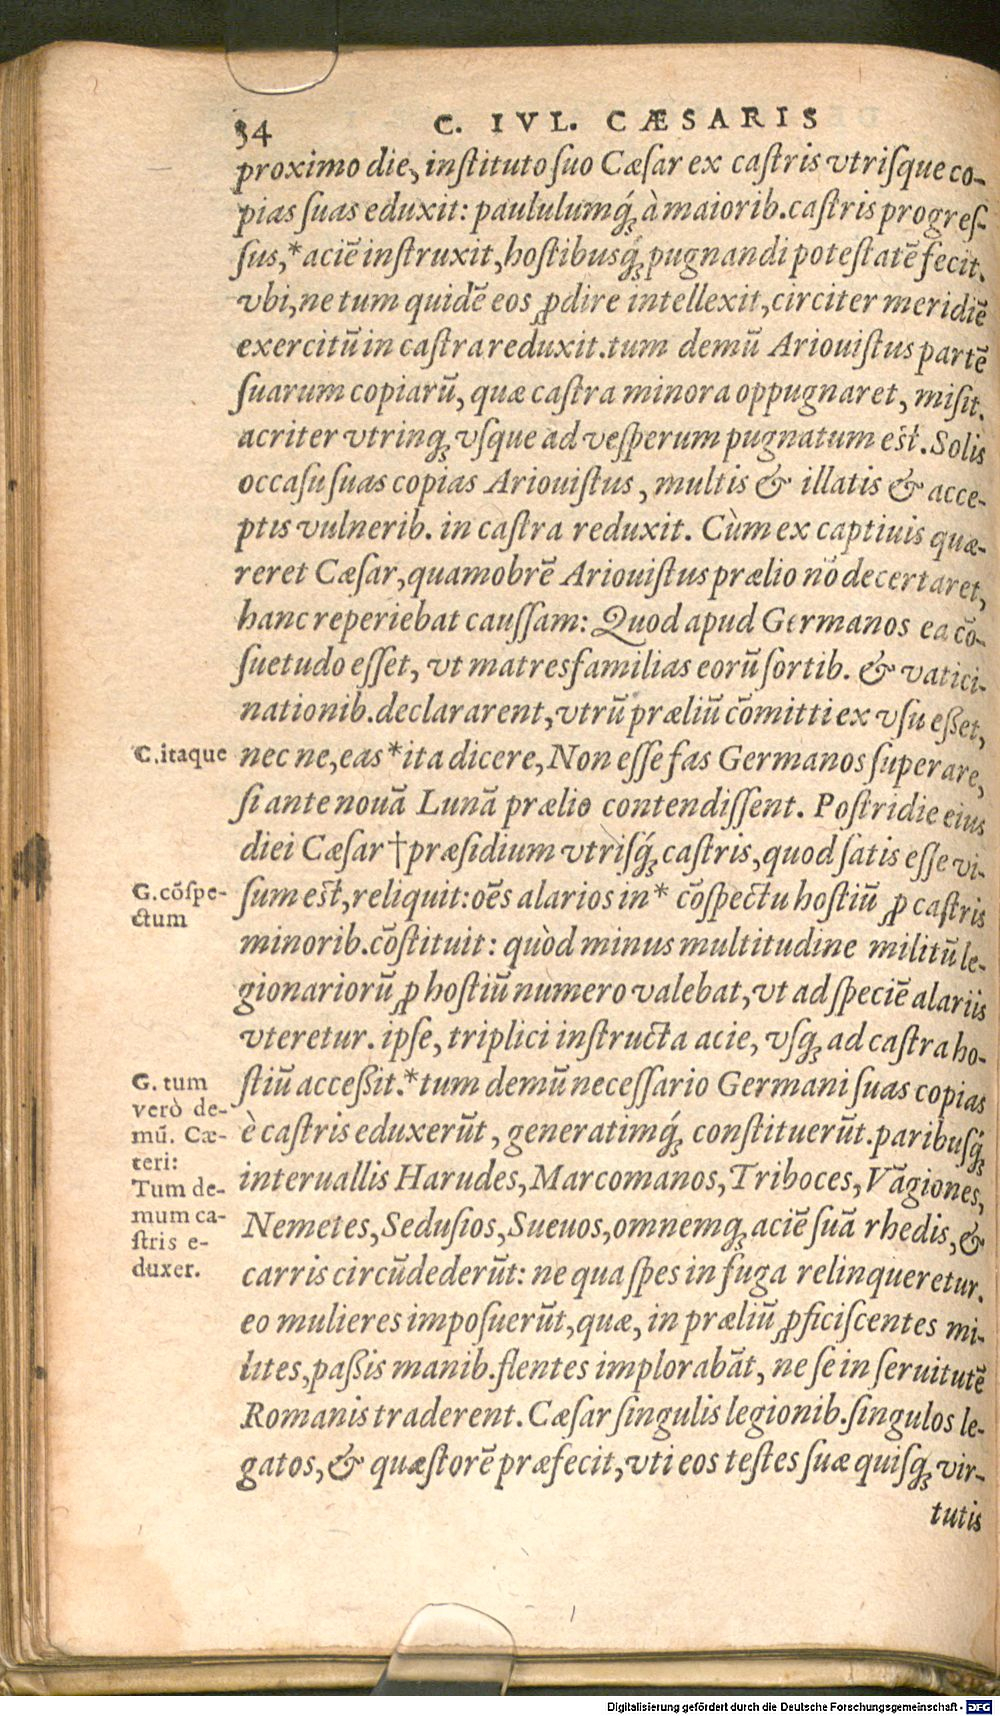 34
C. IVL. CÆSARIS
proximo die, instituto suo Cæsar ex castris vtrisque co-
pias suas eduxit: paululumq́; à maiorib. castris progres-
sus,* aciē instruxit, hostibusq́; pugnandi potestatē fecit.
vbi, ne tum quidē eos ꝓdire intellexit, circiter meridiē
exercitū in castra reduxit. tum demū Ariouistus partē
suarum copiarū, quæ castra minora oppugnaret, misit.
acriter vtrinq; vsque ad vesperum pugnatum est. Solis
occasu suas copias Ariouistus, multis & illatis & acce-
ptis vulnerib. in castra reduxit. Cùm ex captiuis quæ-
reret Cæsar, quamobrē Ariouistus prælio nō decertaret,
hanc reperiebat caussam: Quod apud Germanos ea cō-
suetudo esset, vt matresfamilias eorū sortib. & vatici-
nationib. declararent, vtrū præliū cōmitti ex vsu esset,
C. itaque
nec ne, eas *ita dicere, Non esse fas Germanos superare,
si ante nouā Lunā prælio contendissent. Postridie eius
diei Cæsar † præsidium vtrisq́; castris, quod satis esse vi-
G. cōspe-
ctum
sum est, reliquit: oēs alarios in * cōspectu hostiū ꝓ castris
minorib. cōstituit: quòd minus multitudine militū le-
gionariorū ꝓ hostiū numero valebat, vt ad speciē alariis
vteretur. ipse, triplici instructa acie, vsq; ad castra ho-
G. tum
verò de-
mū. Cæ-
teri:
Tum de-
mum ca-
stris e-
duxer.
stiū accessit.* tum demū necessario Germani suas copias
è castris eduxerūt, generatimq́; constituerūt. paribusq́;
interuallis Harudes, Marcomanos, Triboces, Vāgiones,
Nemetes, Sedusios, Sueuos, omnemq; aciē suā rhedis, &
carris circūdederūt: ne qua spes in fuga relinqueretur.
eo mulieres imposuerūt, quæ, in præliū ꝓficiscentes mi-
lites, passis manib. flentes implorabāt, ne se in seruitutē
Romanis traderent. Cæsar singulis legionib. singulos le-
gatos, & quæstorē præfecit, vti eos testes suæ quisq; vir-
tutis
Digitalisierung gefördert durch die Deutsche Forschungsgemeinschaft - DFG